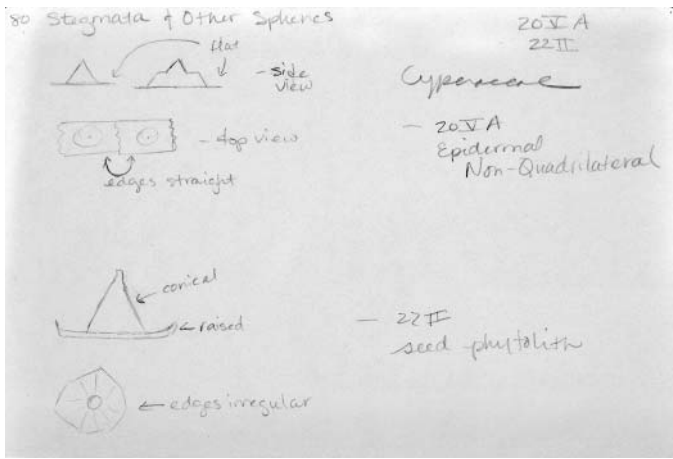 80 Stegmata & Other Spheres
20 V A
22 II
flat
- side
view
Cyperaceae
- top view
- 20 V A
Epidermal
Non-Quadrilateral
edges straight
conical
raised
- 22 II
seed phytolith
edges irregular